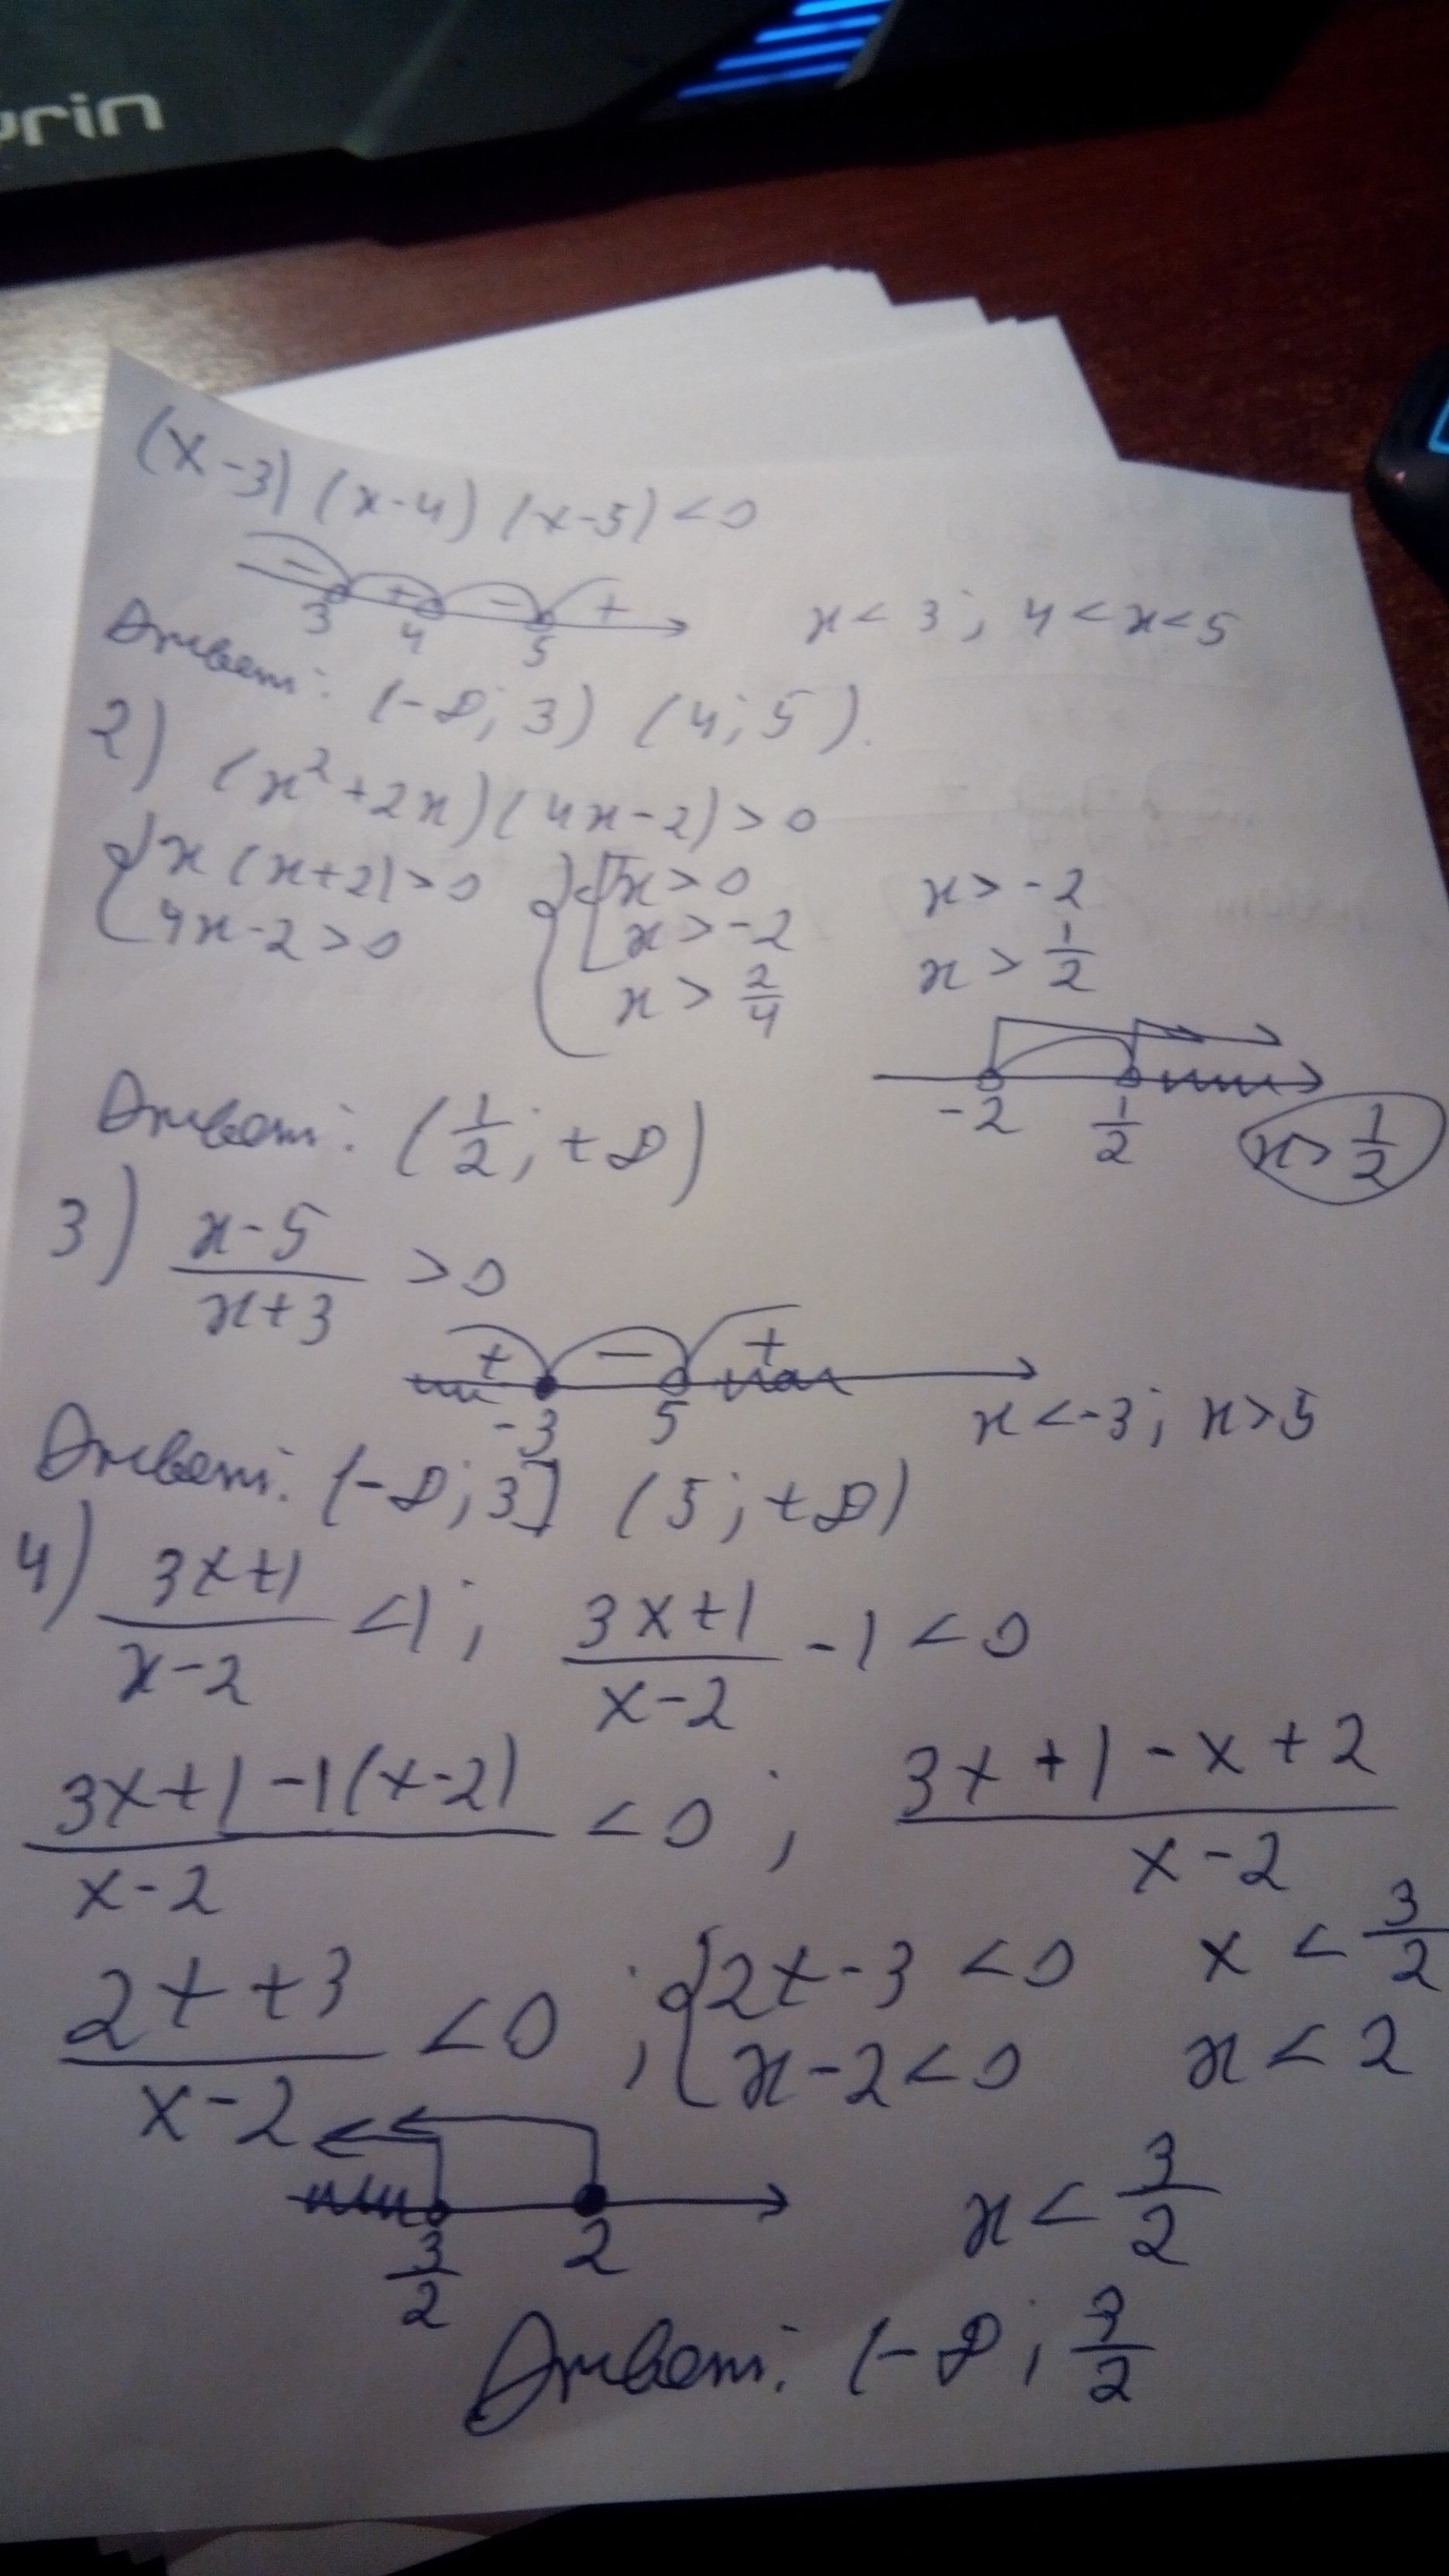 yrin
(x-3) (x-4) (x-5) <0
- + - +
3 4 5
x < 3; 4 < x < 5
Ответ: (-∞; 3) (4; 5).
2) (x²+2x)(4x-2)>0
{x(x+2)>0 {[x>0 x>-2
4x-2>0 x>-2 x>1/2
x > 2/4
-2 1/2 x>1/2
Ответ: (1/2; +∞)
3) x-5/x+3 >0
+ - +
-3 5
x<-3; x>5
Ответ: (-∞; 3] (5; +∞)
4) 3x+1/x-2 <1; 3x+1/x-2 -1<0
3x+1-1(x-2)/x-2 <0; 3x+1-x+2/x-2
2x+3/x-2 <0; {2x-3<0 x<3/2
x-2<0 x<2
3/2 2 x<3/2
Ответ: (-∞; 3/2